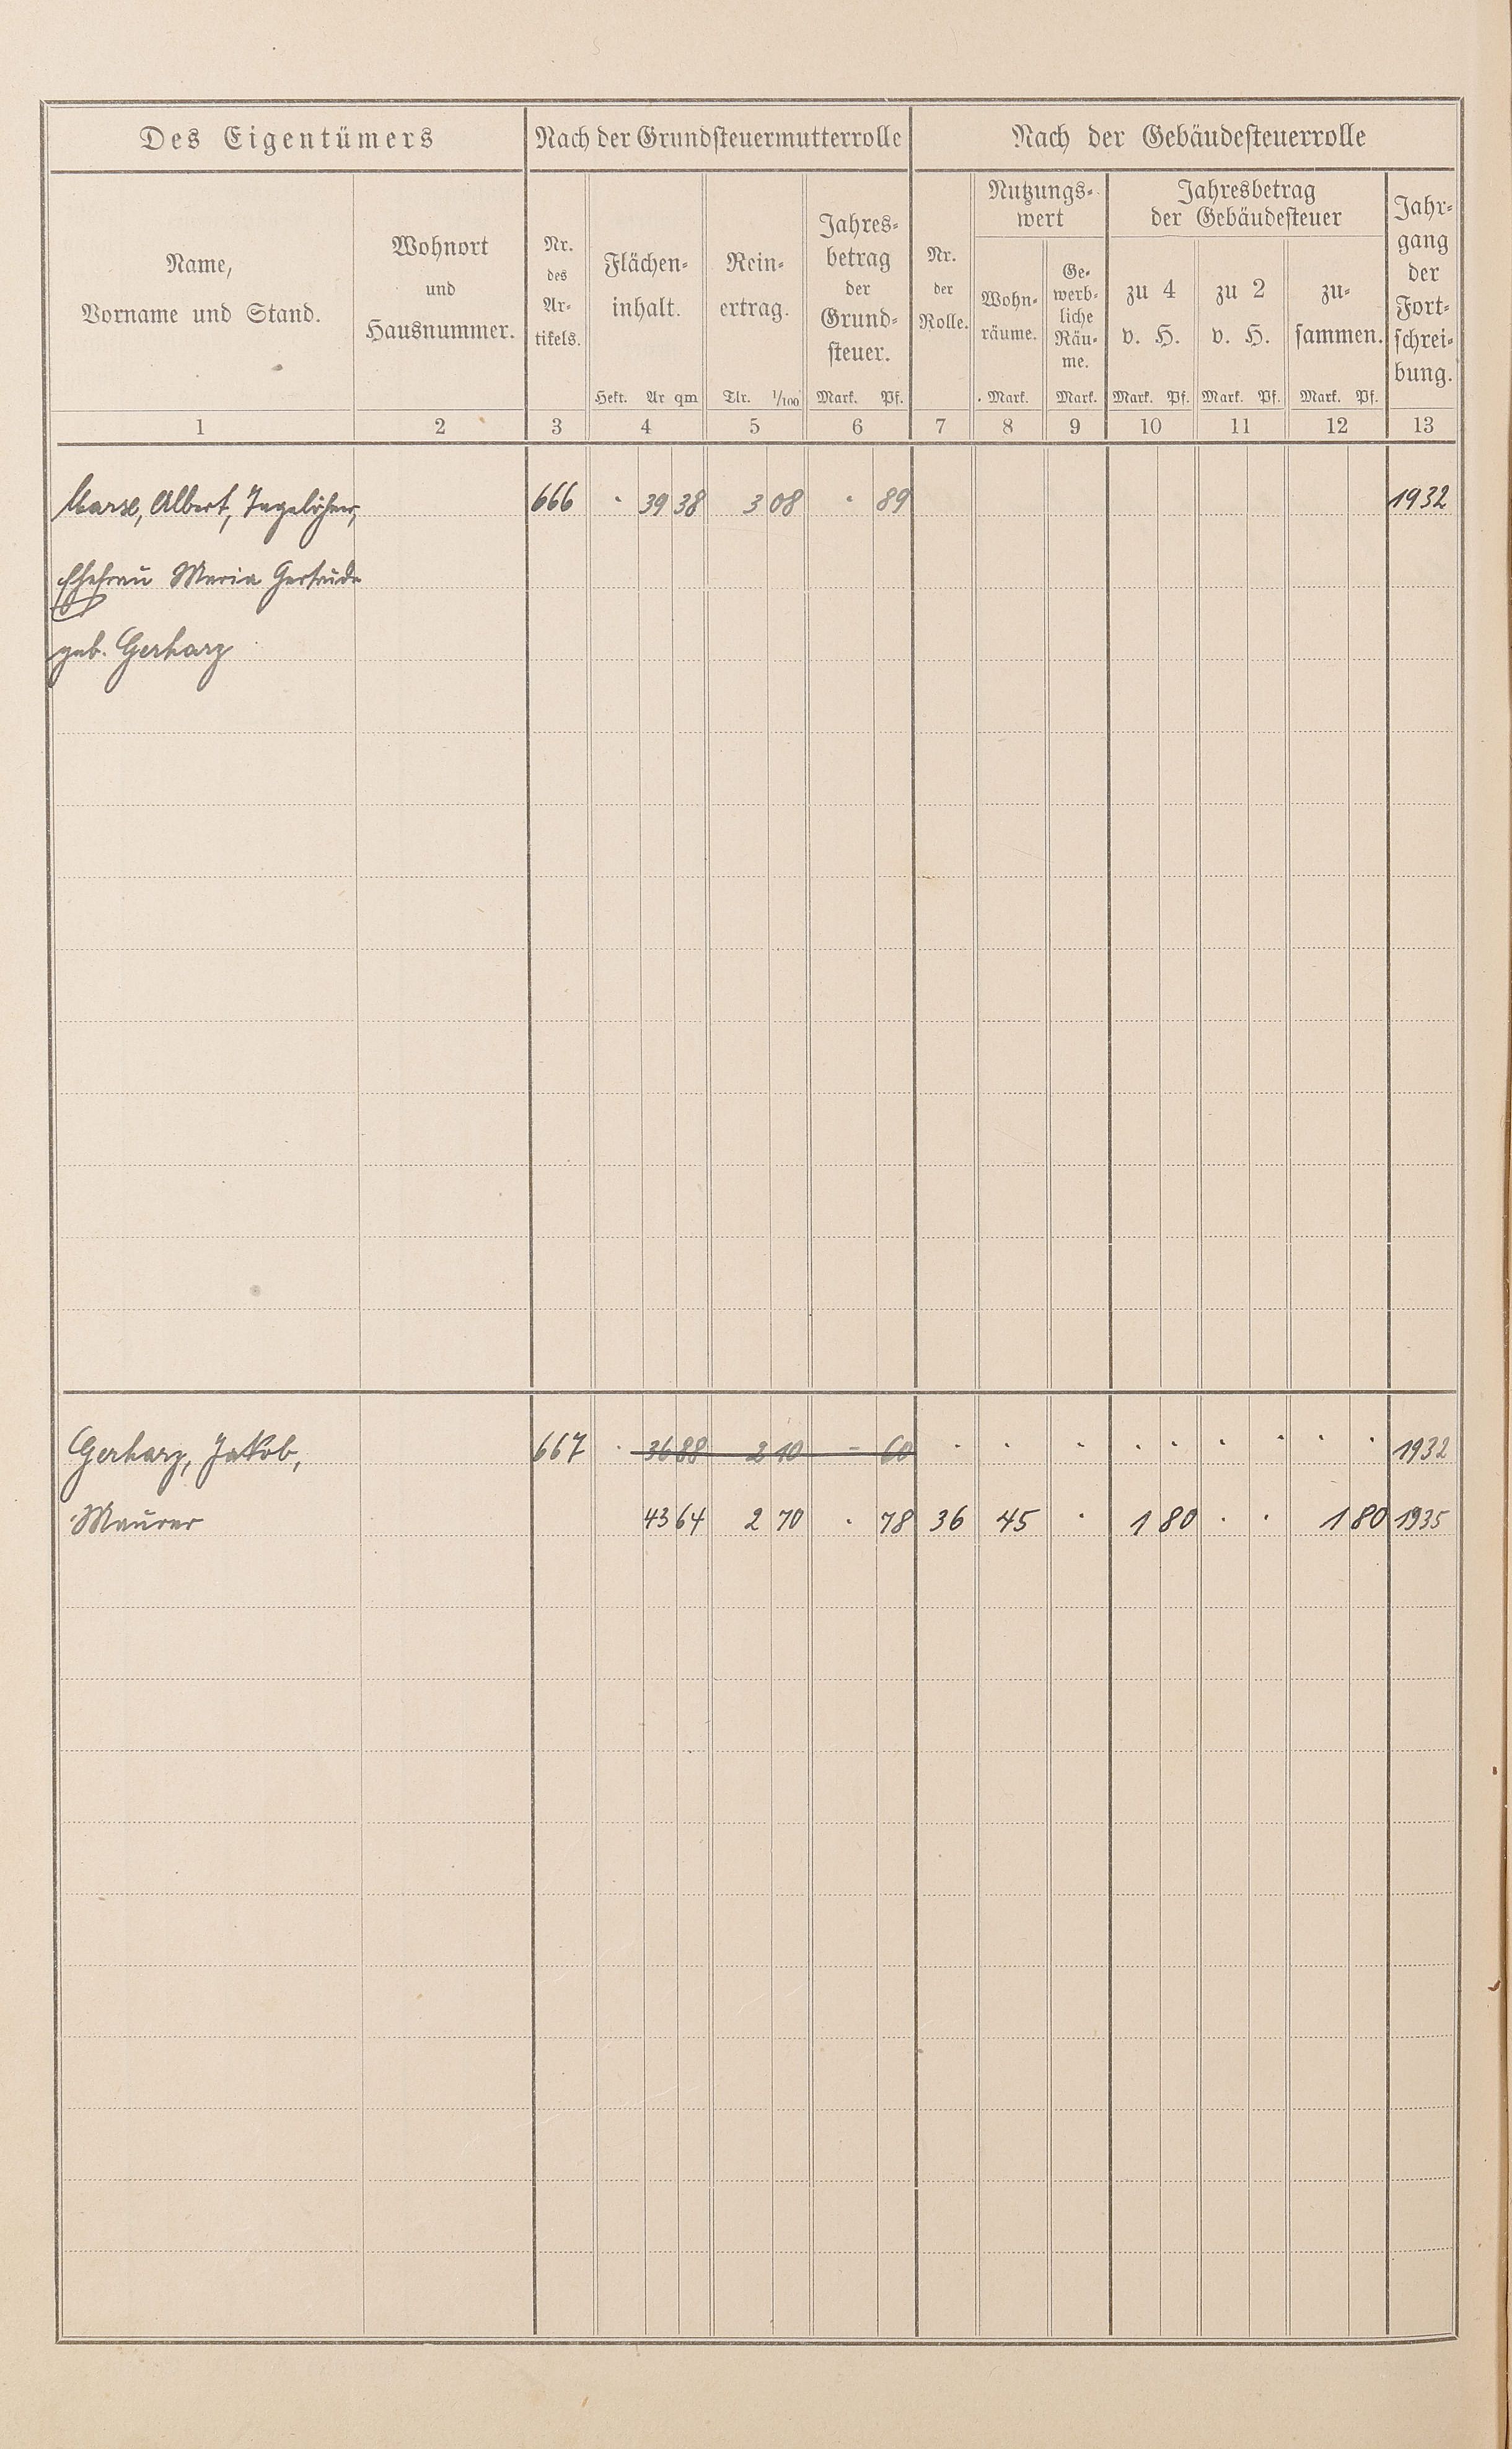 Des Eigentümers Nach der Grundsteuermutterrolle Nach der Gebäudesteuerrolle
Name,
Vorname und Stand.
Wohnort
und
Hausnummer.
Nr.
des
Ar-
tikels.
Flächen-
inhalt.
Hekt. Ar qm
Rein-
ertrag.
Tlr. 1/100
Jahres-
betrag
der
Grund-
steuer.
Mark. Pf.
Nr.
der
Rolle.
Nutzungs-
wert
Wohn-
räume.
Mark.
Ge-
werb-
liche
Räu-
me.
Mark.
Jahresbetrag
der Gebäudesteuer
zu 4
v. H.
Mark. Pf.
zu 2
v. H.
Mark. Pf.
zu-
sammen.
Mark. Pf.
Jahr-
gang
der
Fort-
schrei-
bung.
1 2 3 4 5 6 7 8 9 10 11 12 13
Albert, Tagelöhner, 666 · 39 38 3 08 · 89 1932
Ehefrau Maria Gertrude
geb. Gerharz
Gerharz, Jakob, 667 · 36 88 2 10 – 60 · · · · · · · · · 1932
Maurer 43 64 2 70 · 78 36 45 · 1 80 · · 1 80 1935